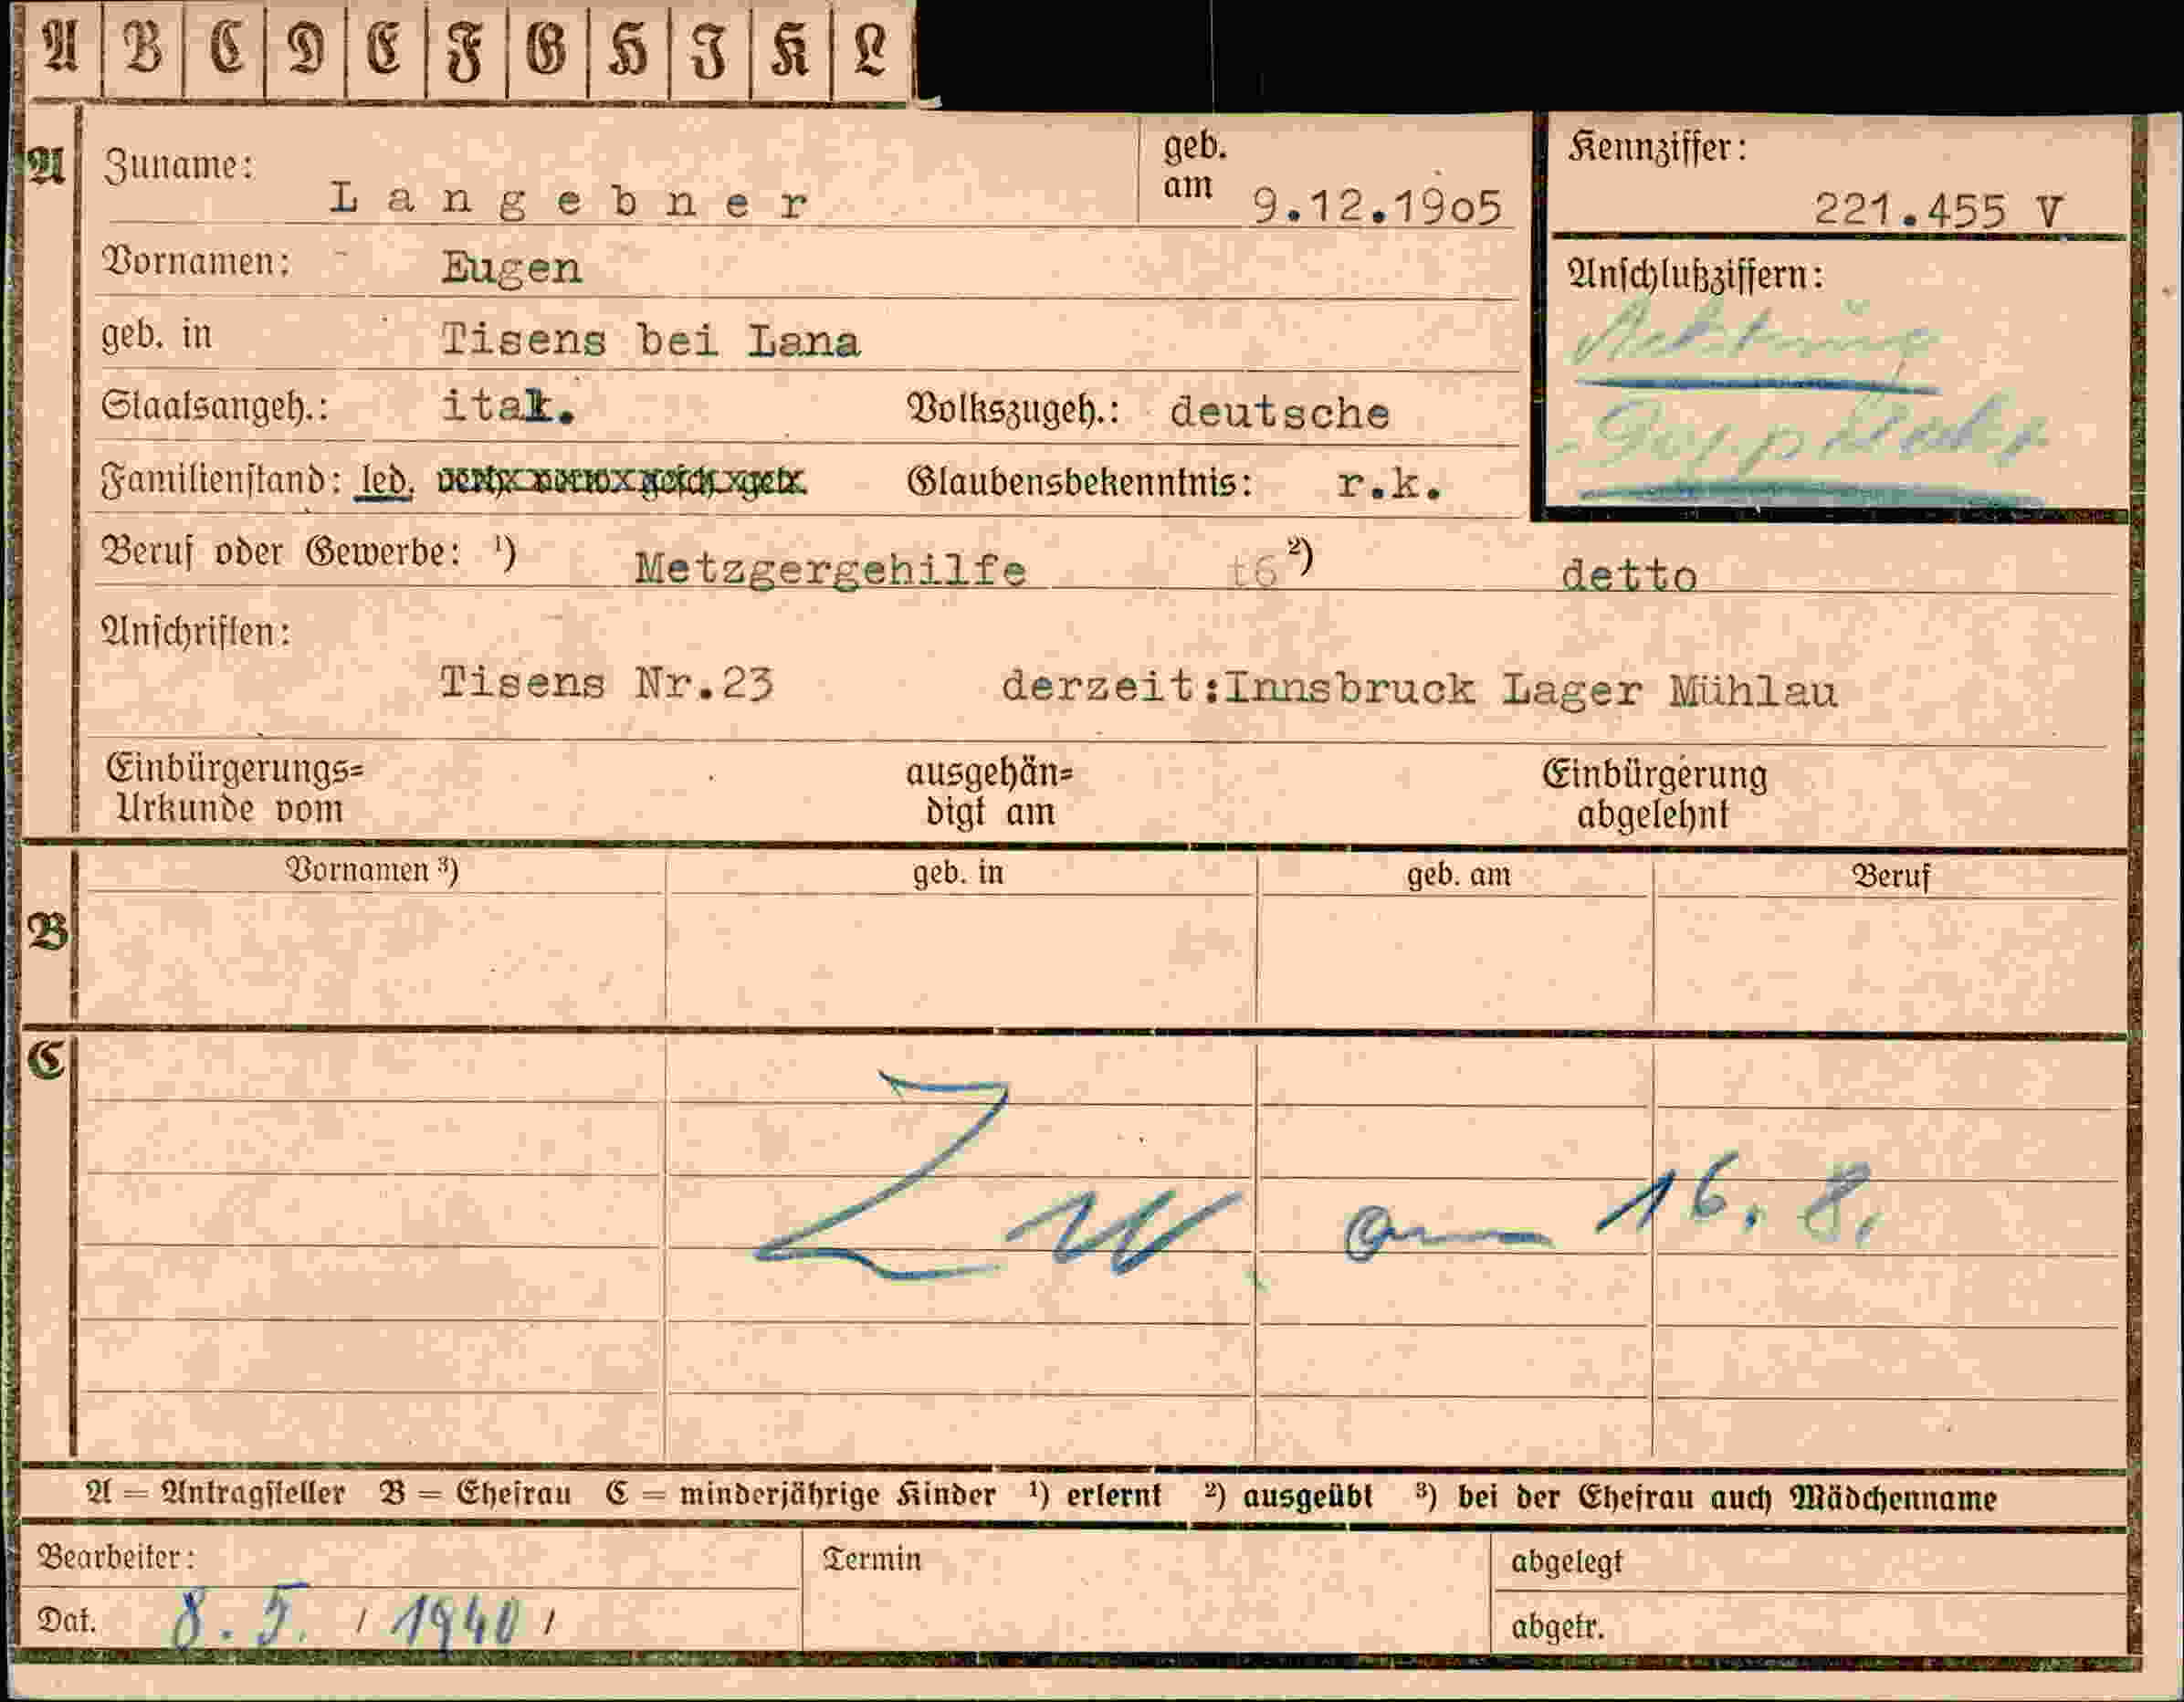 A B C D E F G H I K L
A Zuname: Langebner geb. am 9.12.1905 Kennziffer: 221.455 V
Vornamen: Eugen Anschlußziffern:
geb. in Tisens bei Lana Achtung
Staatsangeh.: ital. Volkszugeh.: deutsche
Familienstand: led. verh. verw. gesch. getr. Glaubensbekenntnis: r.k.
Beruf oder Gewerbe: ¹) Metzgergehilfe ²) detto
Anschriften:
Tisens Nr.23 derzeit:Innsbruck Lager Mühlau
Einbürgerungs= ausgehän= Einbürgerung
Urkunde vom digt am abgelehnt
Vornamen ³) geb. in geb. am Beruf
B
C
am 16. 8.
A = Antragsteller B = Ehefrau C = minderjährige Kinder ¹) erlernt ²) ausgeübt ³) bei der Ehefrau auch Mädchenname
Bearbeiter: Termin abgelegt
Dat. 8. 5. / 1940 / abgetr.